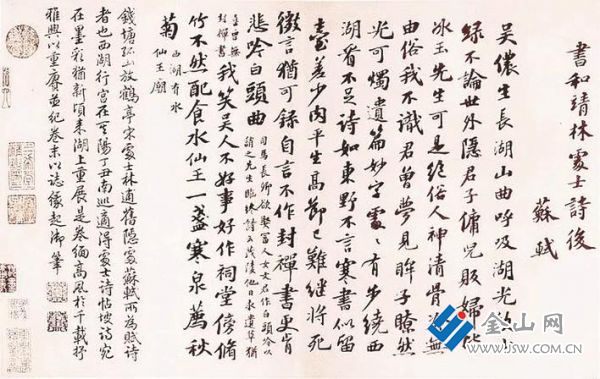 書和靖林處士詩後
蘇軾
吳儂生長湖山曲呼吸湖光飲山
綠不論世外隱君子傭兒販婦皆
冰玉先生可是絕俗人神清骨冷無
由俗我不識君曾夢見眸子瞭然
光可燭遺篇妙字處〻有步繞西
湖看不足詩如東野不言寒書似留
臺差少肉平生高節已難繼將死
微言猶可錄自言不作封禪書更肯
悲吟白頭曲
司馬長卿欲娶富人女文君作白頭吟以
諷之先生臨終詩云茂陵他日求遺草猶
喜曾無
封禪書
我笑吳人不好事好作祠堂傍脩
竹不然配食水仙王一盞寒泉薦秋
菊
西湖有水
仙王廟
錢塘孤山放鶴亭宋處士林逋舊隱處蘇軾所為賦詩
者也西湖行宮在其陽丁丑南巡適得處士詩帖坡詩宛
在墨彩猶新頃來湖上重展是卷緬高風於千載抒
雅興以重賡並紀卷末以誌緣起御筆
金山网